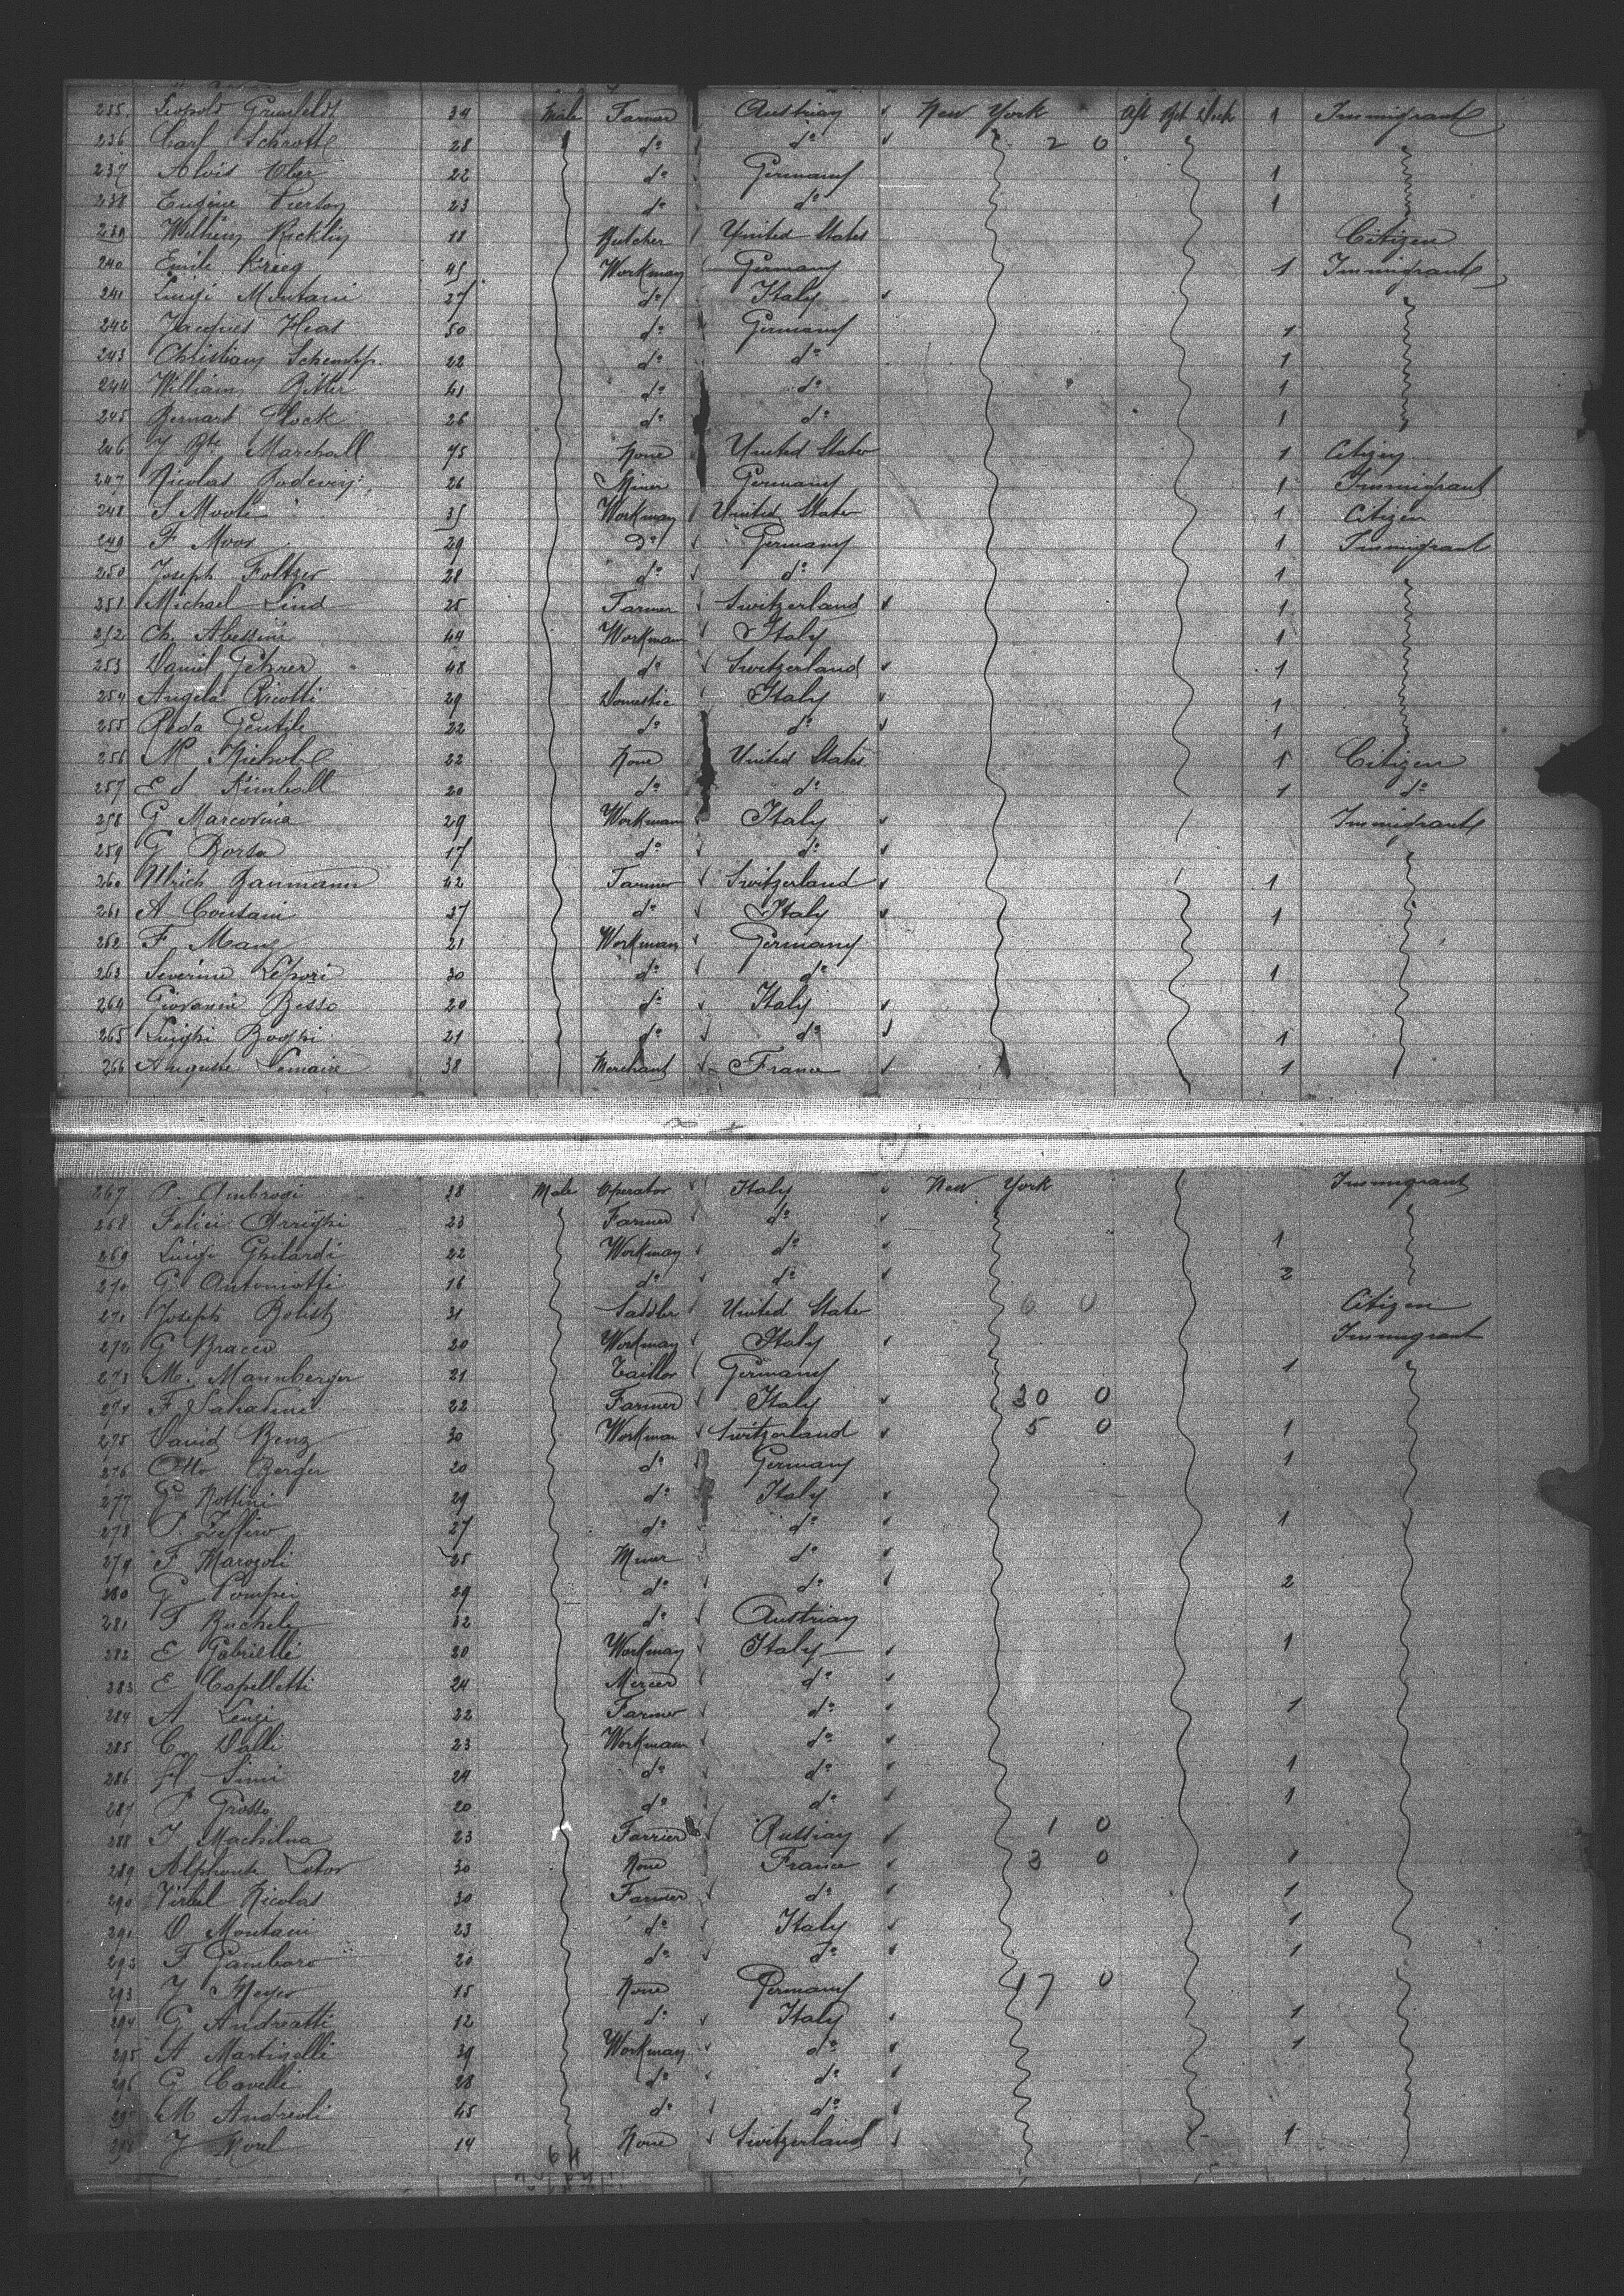 235 Leopold Grunfeldt 39 Male Farmer Austrian New York Aft Bet Deck 1 Immigrant
236 Carl Schrott 28 do do 2 0
237 Alois Ober 22 do Germany 1
238 Eugène 23 do do 1
239 Wilhem Ricklin 18 Butcher United States Citizen
240 Emile Krieg 45 Workman Germany 1 Immigrant
241 Luigi Montani 27 do Italy
242 Jacques Heas 50 do Germany 1
243 Christian Schempp 22 do do 1
244 William Ritter 41 do do 1
245 Bernart Block 26 do do 1
246 J Bte Marchall 75 None United States 1 Citizen
247 Nicolas 26 Miner Germany 1 Immigrant
248 S 35 Workman United States 1 Citizen
249 F Moos 29 do Germany 1 Immigrant
250 Joseph Foltzer 28 do do 1
251 Michael Lind 25 Farmer Switzerland 1
252 Ch. Abessini 44 Workman Italy 1
253 Daniel Gehrer 48 do Switzerland 1
254 Angela Ricotti 29 Domestic Italy 1
255 Reda Gentile 22 do do 1
256 M Nichol 22 None United States 1 Citizen
257 E d Kimball 20 do do 1 do
258 G Marcovina 29 Workman Italy Immigrant
259 G Borsa 17 do do
260 Ulrich Baumann 42 Farmer Switzerland 1
261 A Contani 37 do Italy 1
262 F Mang 21 Workman Germany
263 Severino Lepori 30 do do 1
264 Giovanni Besso 20 do Italy
265 Luighi Boophi 21 do do 1
266 Auguste Lemaire 38 Merchant France 1
267 P. Ambrosi 38 Male Operator Italy New York Immigrant
268 Felici Arrighi 23 Farmer do
269 Luigi Ghilardi 22 Workman do 1
270 G Antoniotti 16 do do 2
271 Joseph Bolist 31 Saddler United States 6 0 Citizen
272 G Bracco 20 Workman Italy Immigrant
273 M. Mannberger 21 Taillor Germany 1
274 F Sabatini 22 Farmer Italy 30 0
275 David Benz 30 Workman Switzerland 5 0 1
276 Otto Berger 20 do Germany 1
277 G Rottini 29 do Italy
278 P. Zeffiro 27 do do 1
279 F Marozoli 25 Miner do
280 G Pompei 29 do do 2
281 F Bucheli 32 do Austrian
282 E Gabrielli 20 Workman Italy 1
283 E Capelletti 24 Mercer do
284 A Lenzi 22 Farmer do 1
285 C Dalli 23 Workman do
286 H Simi 24 do do 1
287 P Grosso 20 do do 1
288 J Machilna 23 Farrier Russian 1 0
289 Alphonse Lebor 30 None France 3 0 1
290 Virbel Nicolas 30 Farmer do 1
291 D Montani 23 do Italy 1
292 F Gambaro 20 do do 1
293 J Meyer 15 None Germany 17 0
294 G Andreatti 12 do Italy 1
295 A Martinelli 39 Workman do 1
296 G Cavelli 28 do do
297 M Andreoli 45 do do
298 J Morel 14 None Switzerland 1
64